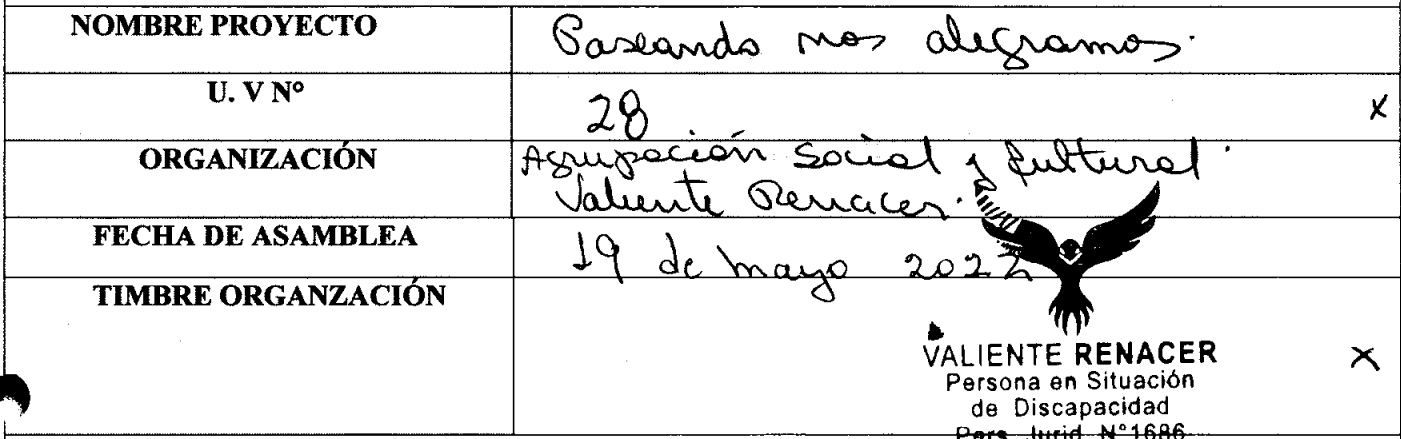 NOMBRE PROYECTO
Paseando nos alegramos.
U. V Nº
28
X
ORGANIZACIÓN
Agrupación Social y Cultural
Valiente Renacer.
FECHA DE ASAMBLEA
19 de mayo 2022
TIMBRE ORGANZACIÓN
VALIENTE RENACER
X
Persona en Situación
de Discapacidad
Pers. Jurid. N°1686